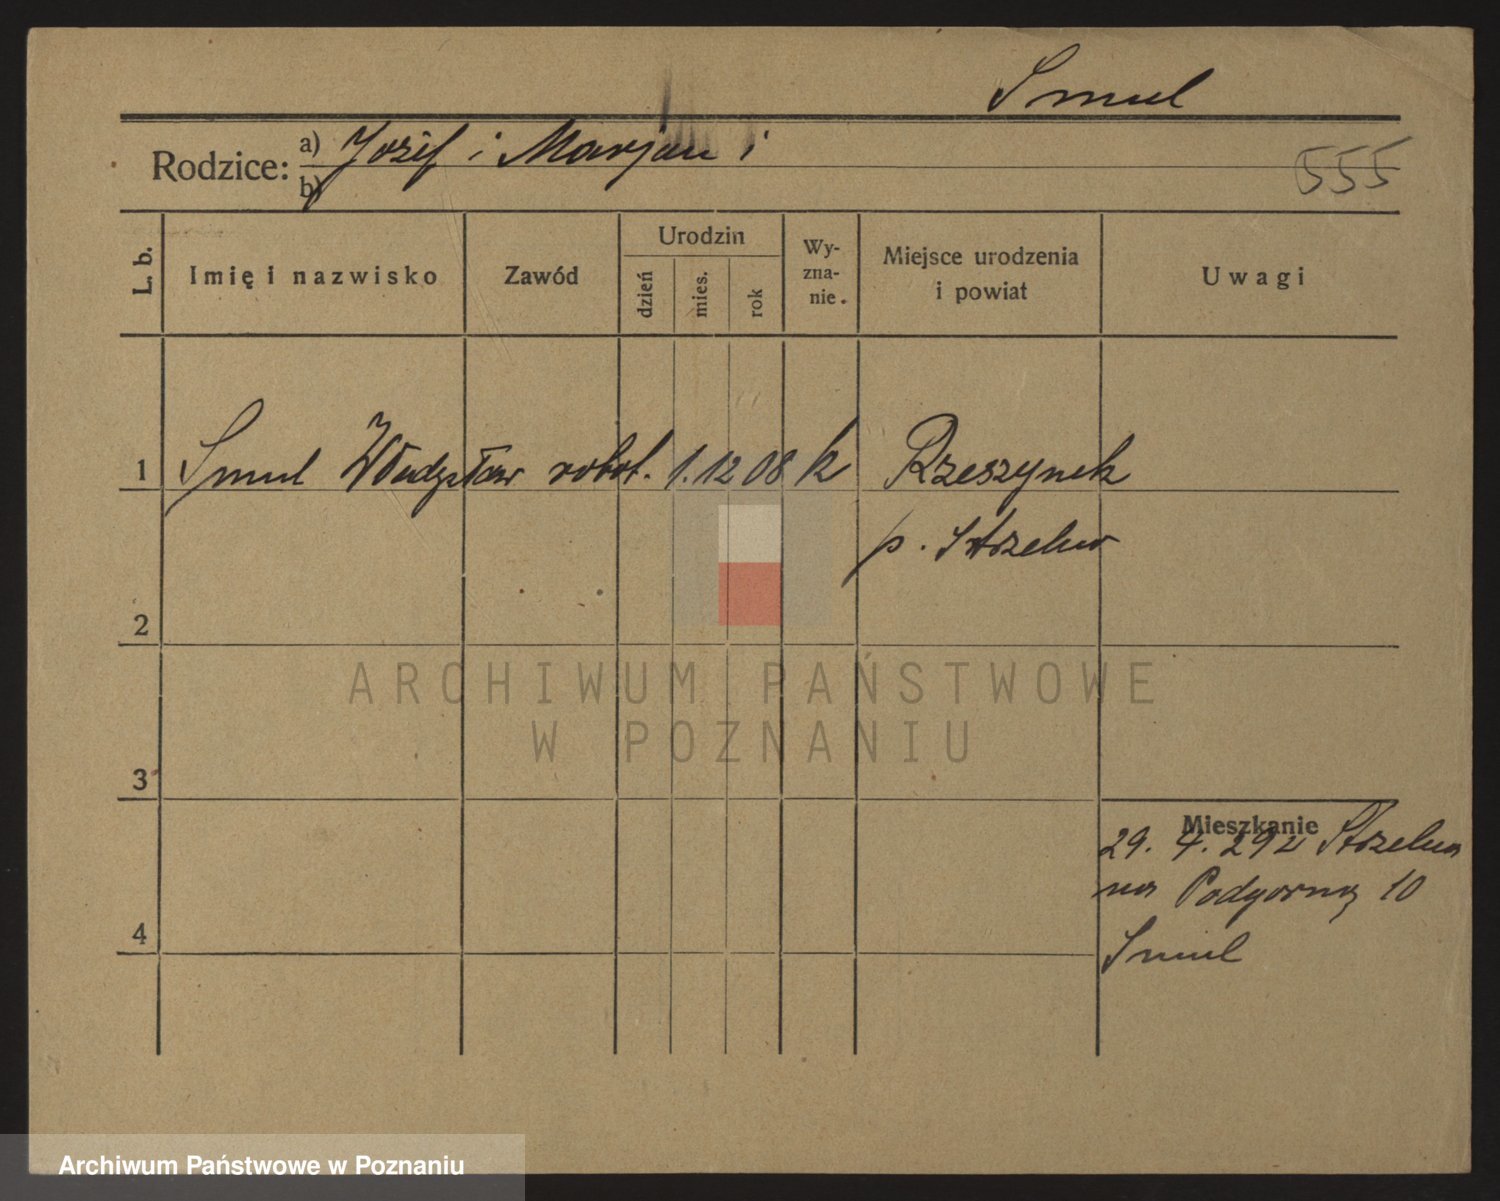 Smul
Rodzice: a) Jozef i Marjan i
b)
555
L. b.
Imię i nazwisko
Zawód
Urodzin
dzień
mies.
rok
Wy-
zna-
nie.
Miejsce urodzenia
i powiat
Uwagi
1 Smul Władysław robot. 1. 12 08 k Rzeszynek
p. Strzelno
2
3
4
ARCHIWUM PAŃSTWOWE
W POZNANIU
Mieszkanie
29. 4. 29 z Strzelna
na Podgorną 10
Smul
Archiwum Państwowe w Poznaniu